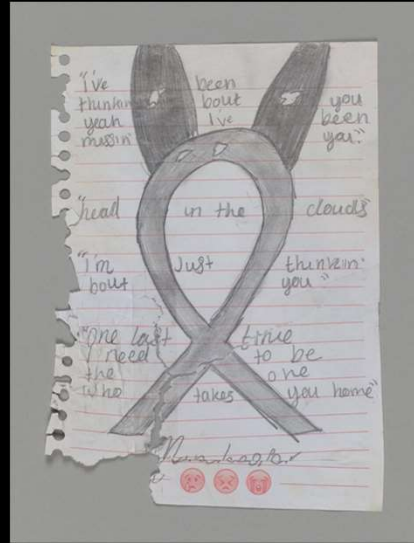 "I've been
thinkin bout you
yeah I've been
missin' you."
"head in the clouds"
"I'm Just thinkin'
bout you"
"one last time
I need to be
the one
who takes you home"